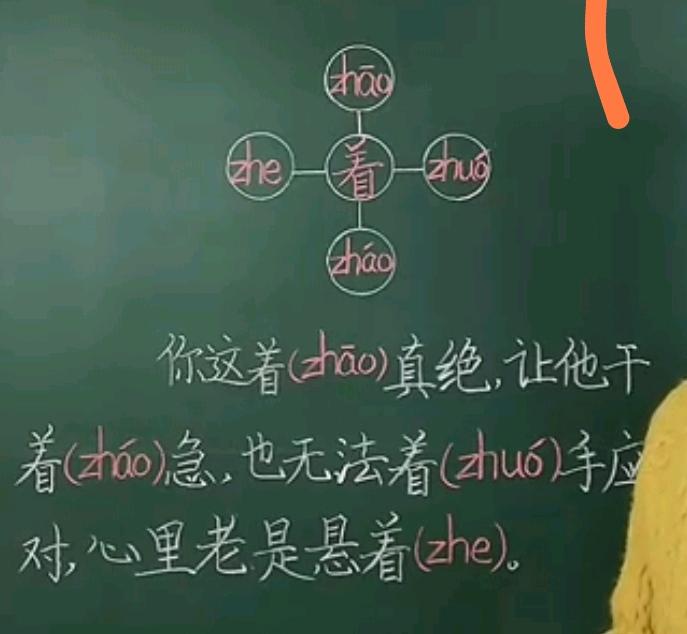 zhāo
zhe 着 zhuó
zháo
你这着(zhāo)真绝,让他干
着(zháo)急,也无法着(zhuó)手应
对,心里老是悬着(zhe)。